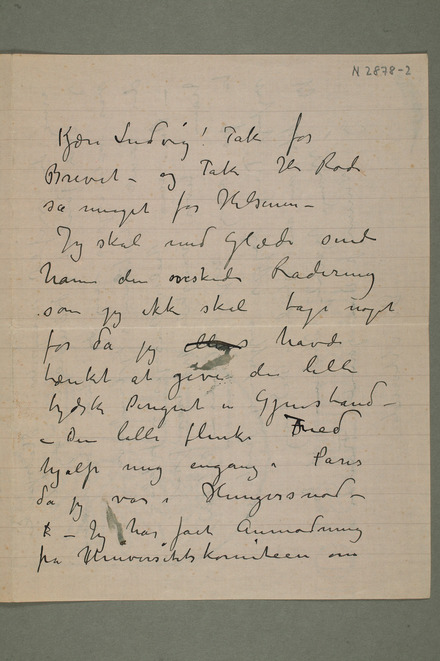 N 2878-2
Kjære Ludvig! Tak for
Brevet – og Tak Hr Rode
så meget for Hilsenen –
Jeg skal med Glæde sende
ham den ønskede Radering
som jeg ikke skal tage noget
for da jeg havde
tænkt at give den lille
tydske Digret en Gjenstand –
– Den lille flinke
hjalp mig engang i Paris
da jeg var i Hungersnød –
– Jeg har fåt Anmodning
fra Universitetskomiteen om